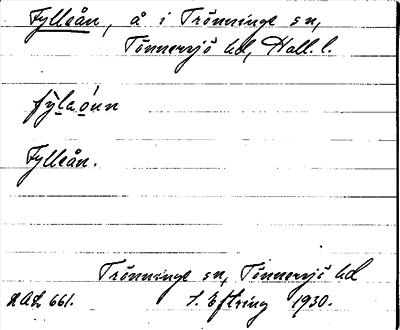 Fylleån, å i Trönninge sn,
Tönnersjö hd, Hall. l.
fy̆laớnn
Fylleån.
Trönninge sn, Tönnersjö hd
RAÄ 661. S. Eftring 1930.